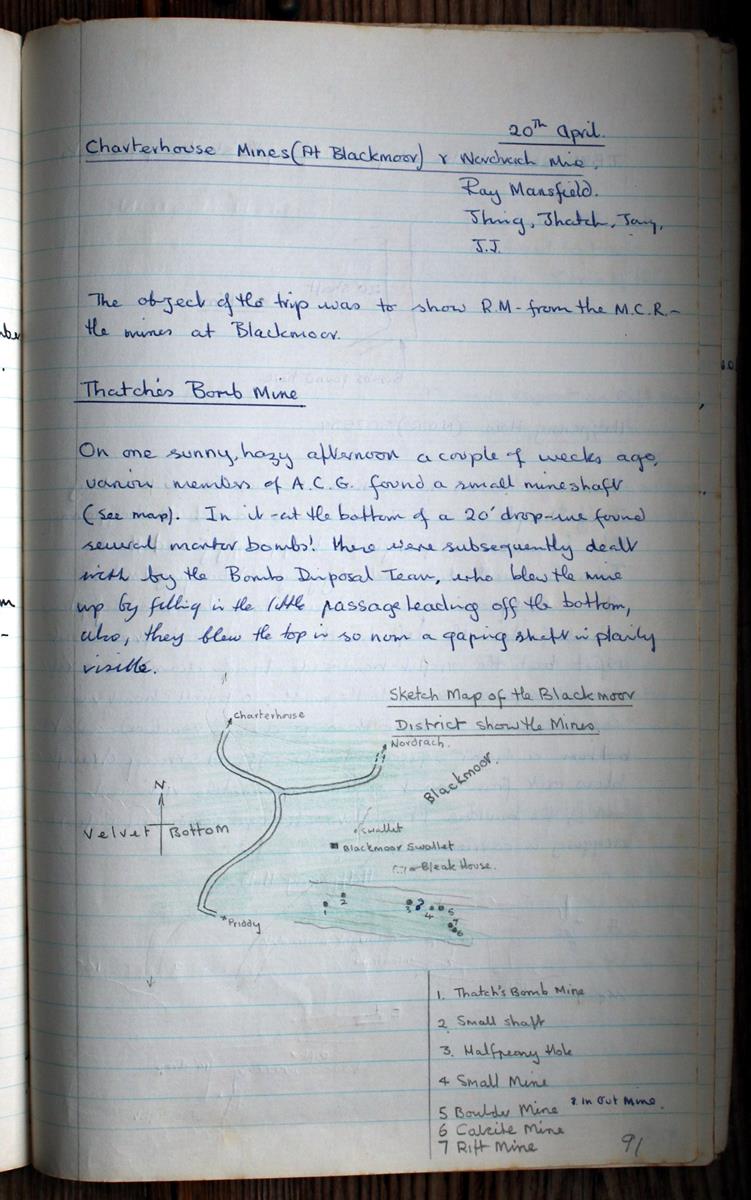 20th April.
Charterhouse Mines (At Blackmoor) & Nordrach Mine.
Ray Mansfield.
Thrig, Thatch, Tony,
J.J.
The object of the trip was to show R.M - from the M.C.R. -
the mines at Blackmoor.
Thatch's Bomb Mine
On one sunny, hazy afternoon a couple of weeks ago,
various members of A.C.G. found a small mineshaft
(see map). In it - at the bottom of a 20' drop - we found
several mortar bombs! these were subsequently dealt
with by the Bombs Disposal Team, who blew the mine
up by filling in the little passage leading off the bottom,
also, they blew the top in so now a gaping shaft is plainly
visible.
Sketch Map of the Blackmoor
District show the Mines.
Charterhouse
Nordrach.
Blackmoor.
N
Velvet Bottom
Swallet
Blackmoor Swallet
Bleak House.
1 2 3 ? 4 5 7 6
Priddy
1. Thatch's Bomb Mine
2. Small shaft
3. Halfpenny Hole
4 Small Mine
5 Boulder Mine 8. In Out Mine.
6 Calcite Mine
7 Rift Mine
91